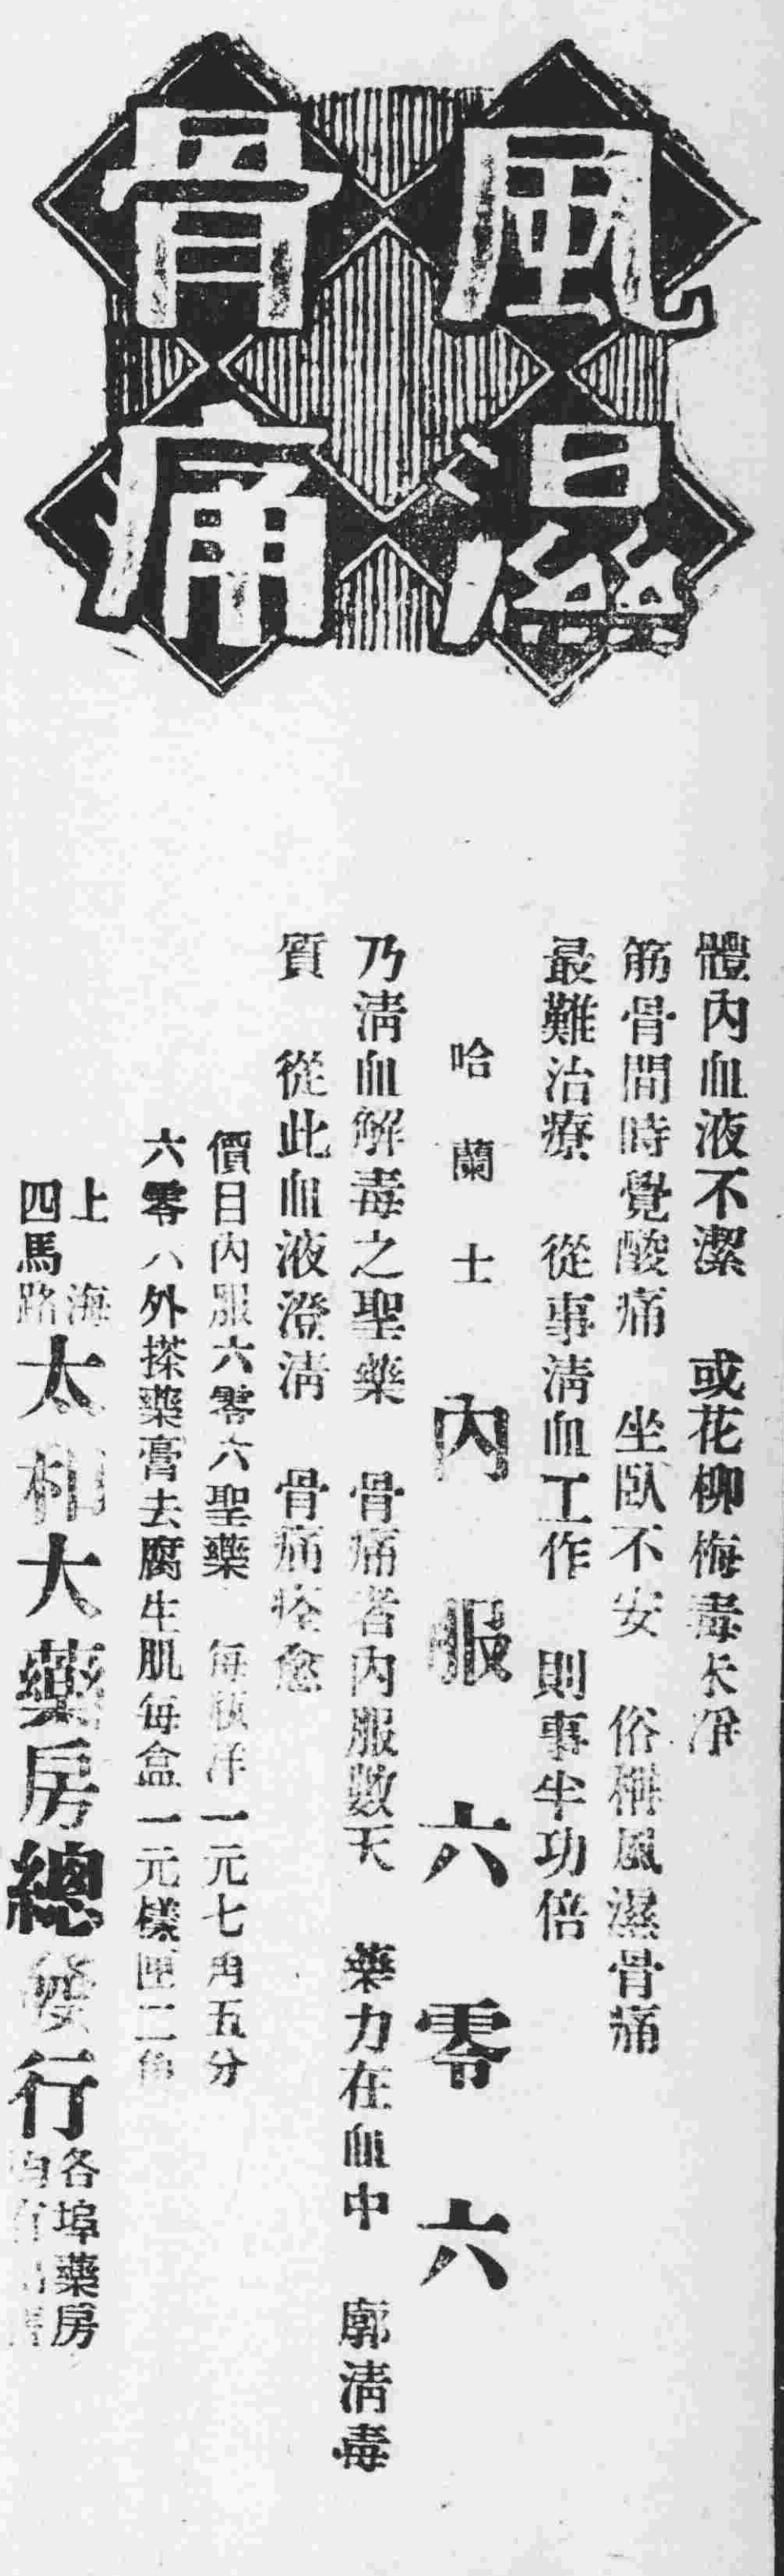 風濕
骨痛
體內血液不潔　或花柳梅毒未淨
筋骨間時覺酸痛　坐臥不安　俗稱風濕骨痛
最難治療　從事清血工作　則事半功倍
哈蘭士內服六零六
乃清血解毒之聖藥　骨痛者內服數天　藥力在血中　廓清毒
質　從此血液澄清　骨痛痊愈
價目內服六零六聖藥　每瓶洋一元七角五分
六零八外搽藥膏去腐生肌每盒一元樣匣二角
上海
四馬路
太和大藥房總發行
各埠藥房
均有